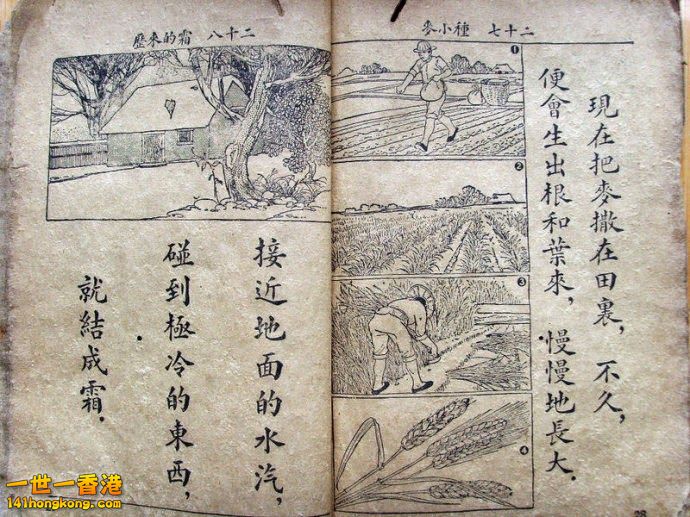 二十七 種小麥
現在把麥撒在田裏，不久，
便會生出根和葉來，慢慢地長大．
❶
❷
❸
❹
二十八 霜的來歷
接近地面的水汽，
碰到極冷的東西，
就結成霜．
一世一香港
141hongkong.com